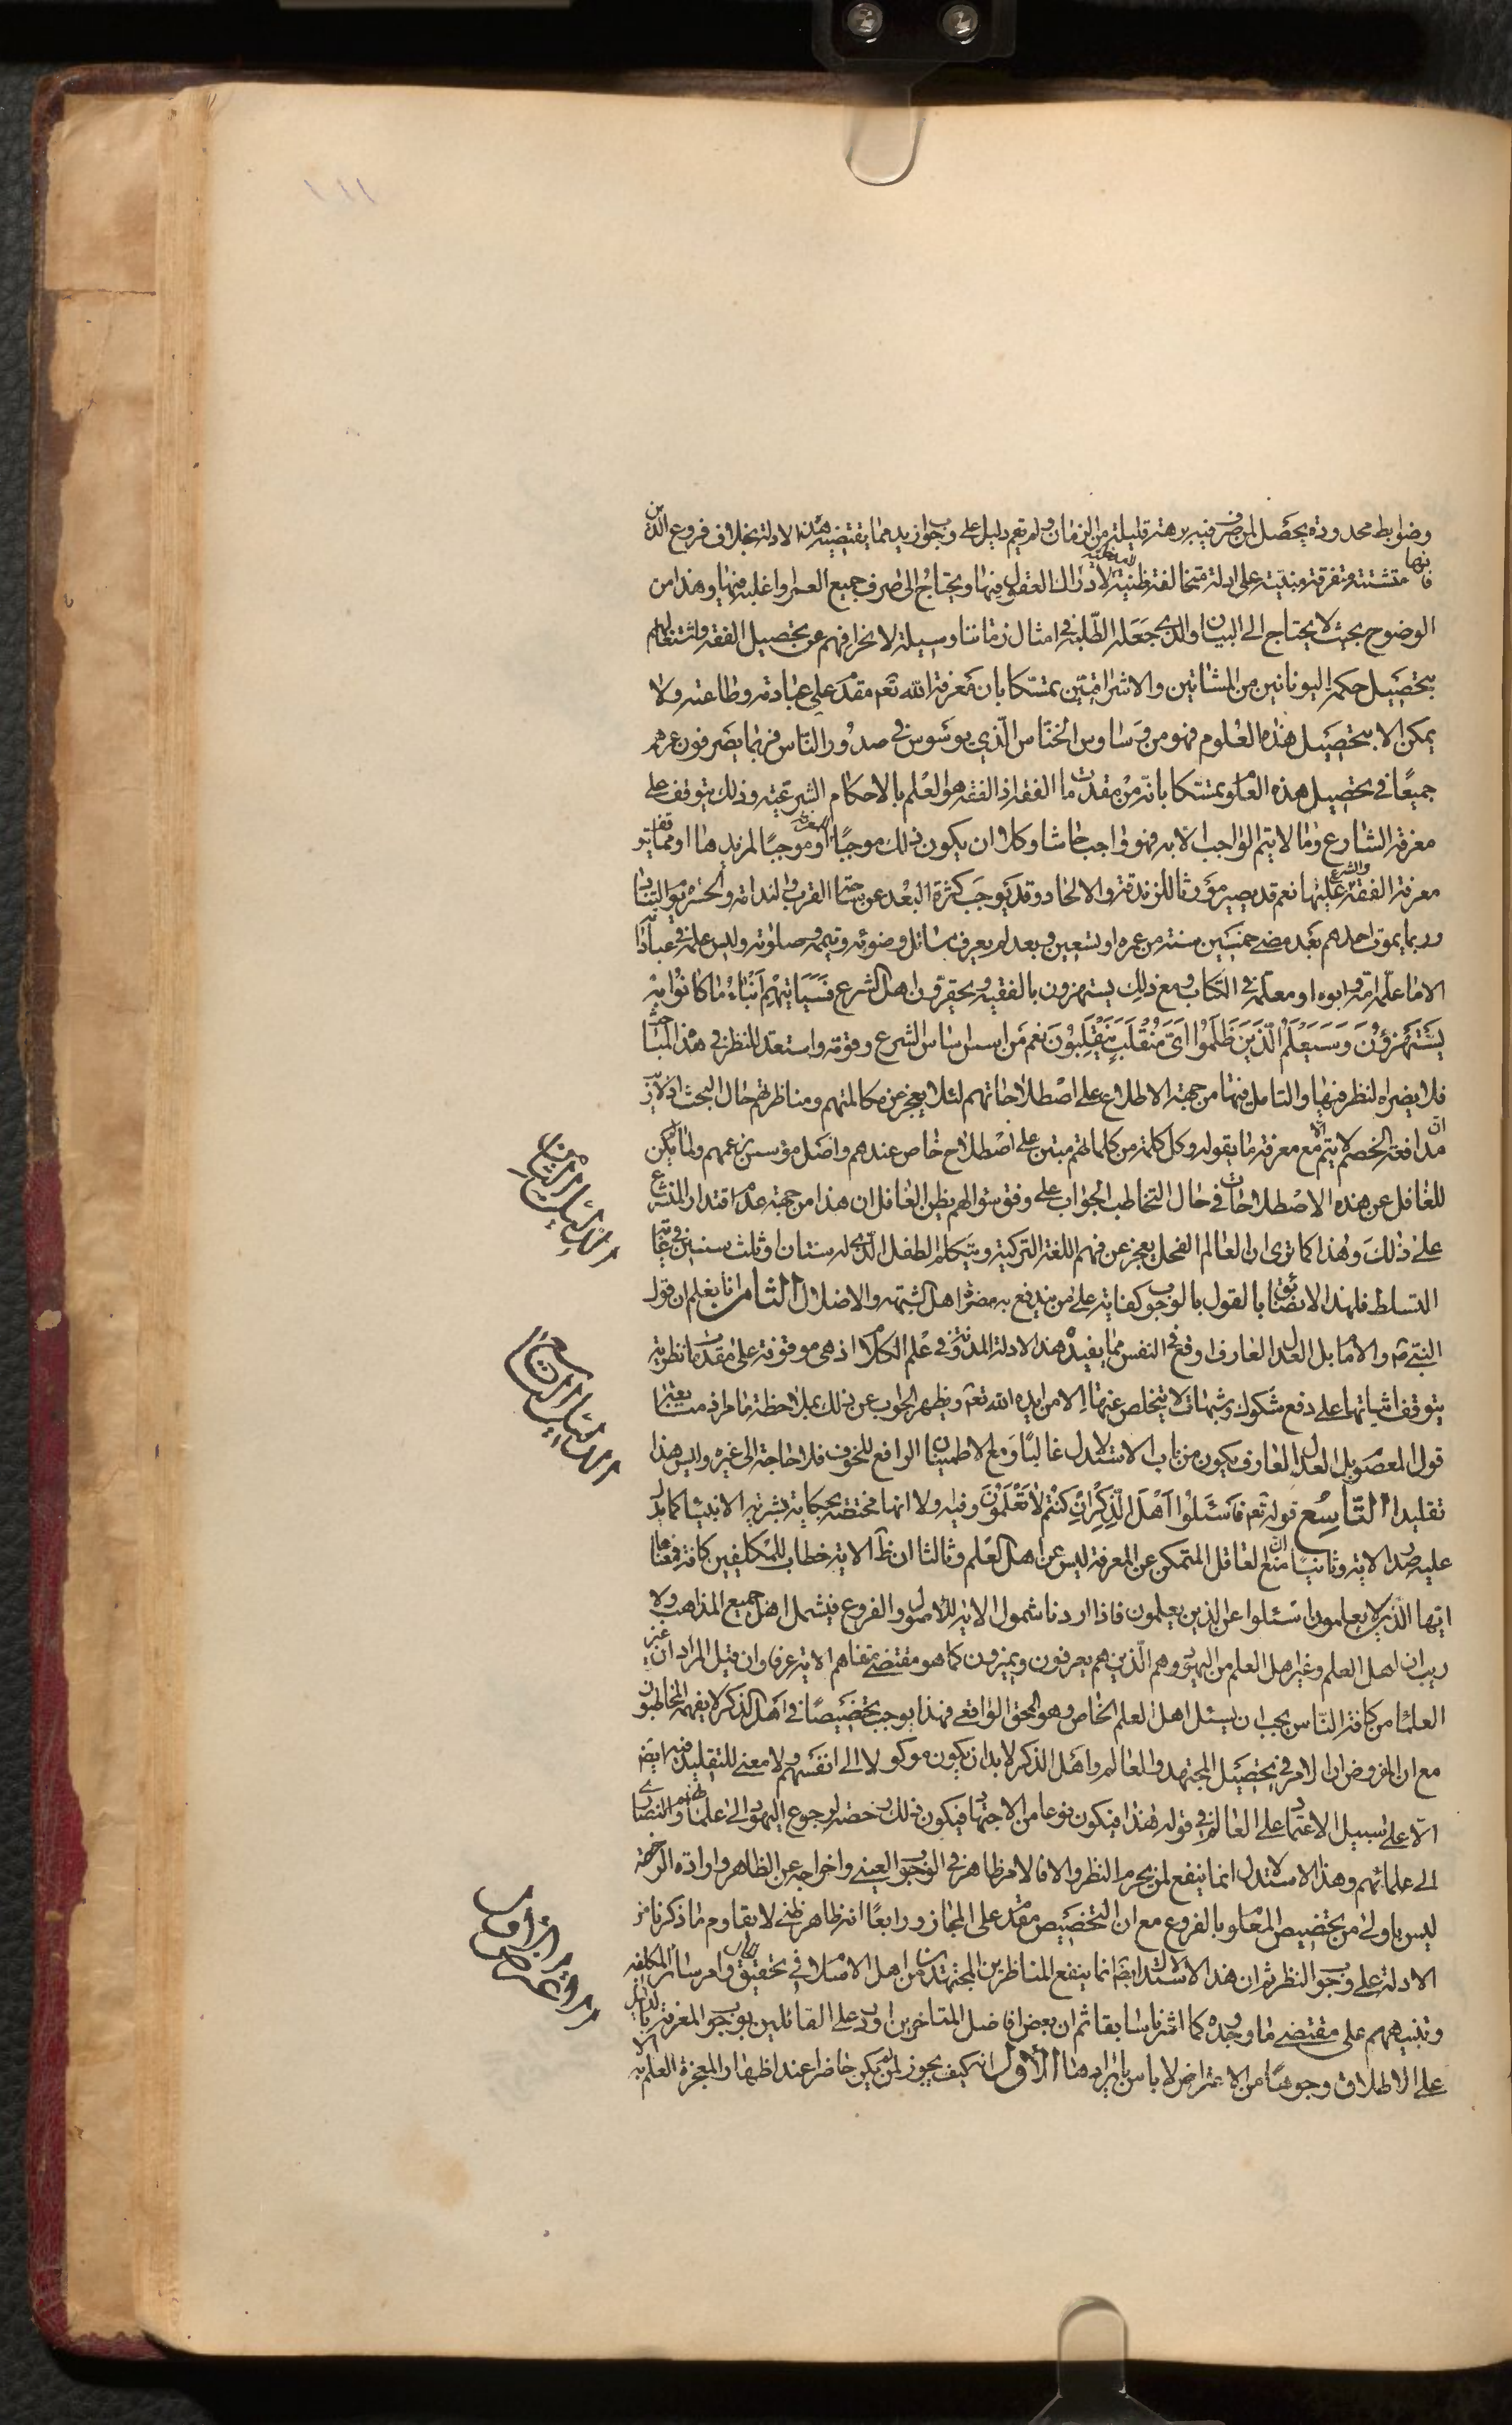 ١١١
وضوابط محدودة يحصل لمن صرف فيه برهة قليلة من الزمان ولم يقم دليل على وجوب ازيد مما يقتضيه هذه الادلة بخلاف فروع الدين
فانها متشتتة متفرقة مبتنية على ادلة متخالفة ظنية لا دراك العقول فيها ويحتاج الى صرف جميع العمر او اغلبه فيها وهذا من
الوضوح بحيث لا يحتاج الى البيان والذي جعله الطلبة في امثال زماننا وسيلة لانحرافهم عن تحصيل الفقه واشتغالهم
بتحصيل حكمة اليونانيين من المشائين والاشراقيين تمسكا بان معرفة الله تعم مقدم على عبادته وطاعته ولا
يمكن الا بتحصيل هذه العلوم فهو من وساوس الخناس الذي يوسوس في صدور الناس فربما يصرفون عمرهم
جميعًا في تحصيل هذه العلوم تمسكا بانه من مقدمات الفقه اذ الفقه هو العلم بالاحكام الشرعية وذلك يتوقف على
معرفة الشارع وما لا يتم الواجب الا به فهو واجب حاشا وكلا ان يكون ذلك موجبًا للمعرفة او موجبًا لمزيدها او مما يتوقف
معرفة الفقه والشرع عليها نعم قد يصير مؤرثا للزندقة والالحاد وقد يوجب كثرة البعد عن ساحة القرب والندامة والحسرة يوم التناد
وربما يموت احدهم بعد مضي خمسين سنة من عمره او تسعين وبعد لم يعرف مسائل وضوئه وتيممه وصلوته وليس علمه في عباداته
الا ما علمه امه وابوه او معلمه في الكتاب ومع ذلك يستهزؤن بالفقيه ويحقرون اهل الشرع فَسَيَأتيهِم اَنْباءُ ما كانُوا بِهِ
يَسْتَهْزِؤُنَ وَسَيَعْلَمُ الَّذينَ ظَلَمُوا اَيَّ مُنْقَلَبٍ يَنْقَلِبُونَ نعم من اسس اساس الشرع وفقهه واستعد للنظر في هذا المباحث
فلا يضره النظر فيها والتامل فيها من جهة الاطلاع على اصطلاحاتهم لئلا يعجز عن مكالمتهم ومناظرتهم حال البحث اذ لا ريب
ان مدافعة الخصم لا يتم الا مع معرفة ما يقوله وكل كلمة من كلماتهم مبتن على اصطلاح خاص عندهم واصل مؤسس بزعمهم ولما لم يكن
للغافل عن هذه الاصطلاحات في حال التخاطب الجواب على وفق سؤالهم يظن الغافل ان هذا من جهة عدم اقتدار المتشرع
على ذلك وهذا كما ترى ان العالم الفحل يعجز عن فهم اللغة التركية ويتكلم الطفل الذي له سنتان او ثلث سنين في غاية
التسلط فلهذا لا نضائق بالقول بالوجوب كفاية على من يندفع به مضرة اهل الشبهة والاضلال الثامن انا نعلم ان قول
النبي ص والامام بل العدل العارف اوقع في النفس مما يفيده هذه الادلة المدونة في علم الكلام اذ هي موقوفة على مقدمات نظرية
يتوقف اثباتها على دفع شكوك وشبهات لا يتخلص عنها الا من ايده الله تعم ويظهر الجواب عن ذلك بملاحظة ما مر اذ متابعة
قول المعصوم بل العدل العارف يكون من باب الاستدلال غالبًا ومع الاطمينان الرافع للخوف فلا حاجة الى غيره وليس هذا
تقليدا التاسع قوله تعم فَاسْئَلُوا اَهْلَ الذِّكْرِ اِنْ كُنْتُمْ لا تَعْلَمُونَ وفيه اولا انها مختصة بحكاية بشرية الانبياء كما يدل
عليه صدر الاية وثانيا منع ان العاقل المتمكن عن المعرفة ليس عن اهل العلم وثالثا ان ظ الاية خطاب للمكلفين كافة فمعناها
ايها الذين لا يعلمون اسئلوا عن الذين يعلمون فاذا اردنا شمول الاية للاصول والفروع فيشمل اهل جميع المذاهب ولا
ريب ان اهل العلم وغير اهل العلم من اليهود هم الذين هم يعرفون ويميزون كما هو مقتضى تفاهم الاية عرفا وان قيل المراد ان غير
العلماء من كافة الناس يجب ان يسئل اهل العلم الخاص وهو المحق الواقعي فهذا يوجب تخصيصًا في اهل الذكر لا يفهمه المخاطبون
مع ان المفروض ان الامر في تحصيل المجتهد والعالم واهل الذكر لا بد ان يكون موكولا الى انفسهم ولا معنى للتقليد فيه ايضا
الا على سبيل الاعتماد على العالم في قوله فهذا فيكون نوعا من الاجتهاد فيكون ذلك رخصة لرجوع اليهود الى علمائهم والنصارى
الى علمائهم وهذا الاستدلال انما ينفع لمن يحرم النظر والا فالامر ظاهر في الوجوب العيني واخراجه عن الظاهر وارادة الرخصة
ليس باولى من تخصيص المعلوم بالفروع مع ان التخصيص مقدم على المجاز ورابعًا انه ظاهر ظني لا يقاوم ما ذكرنا من
الادلة على وجوب النظر ثم ان هذا الاستدلال ايضا انما ينفع المناظرين المجتهدين من اهل الاسلام في تحقيق الحال وامر سائر المكلفين
وتنبيههم على مقتضى ما وجدوه كما اشرنا سابقا ثم ان بعض افاضل المتاخرين اورد على القائلين بوجوب المعرفة بالدليل
على الاطلاق وجوهًا من الاعتراض لا باس بايرادها الاول انه كيف يجوز لمن لم يكن حاضرا عند اظهار المعجزة العلم به الا